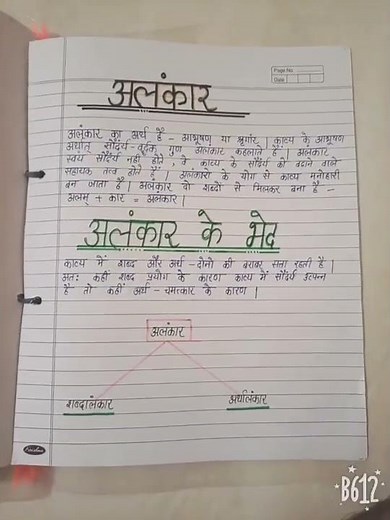 Page No.
Date
अलंकार
अलंकार का अर्थ है – आभूषण या श्रृंगार | काव्य के आभूषण
अर्थात् सौंदर्य-वर्द्धक गुण अलंकार कहलाते हैं | अलंकार
स्वयं सौंदर्य नहीं होते, वे काव्य के सौंदर्य को बढ़ाने वाले
सहायक तत्व होते हैं | अलंकारों के योग से काव्य मनोहारी
बन जाता है | अलंकार दो शब्दों से मिलकर बना है –
अलम् + कार = अलंकार |
अलंकार के भेद
काव्य में शब्द और अर्थ – दोनों की बराबर सत्ता रहती है |
अतः कहीं शब्द प्रयोग के कारण काव्य में सौंदर्य उत्पन्न
है तो कहीं अर्थ – चमत्कार के कारण |
अलंकार
शब्दालंकार अर्थालंकार
B612